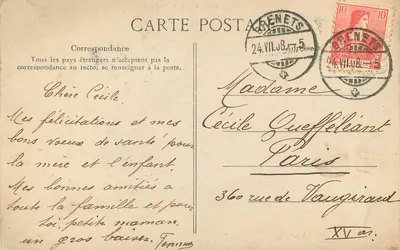 CARTE POSTALE
Correspondance
Tous les pays étrangers n'acceptent pas la
correspondance au recto, se renseigner à la poste.
BRENETS
24.VII.08.-5
BRENETS
24.VII.08.-5
10
10
Chère Cécile.
Mes félicitations et mes
bons vœux de santé pour
la mère et l'enfant.
Mes bonnes amitiés à
toute la famille et pour
toi, petite maman,
un gros baiser.
Madame
Cécile Queffeléant
Paris
360 rue de Vaugirard
XV ar.